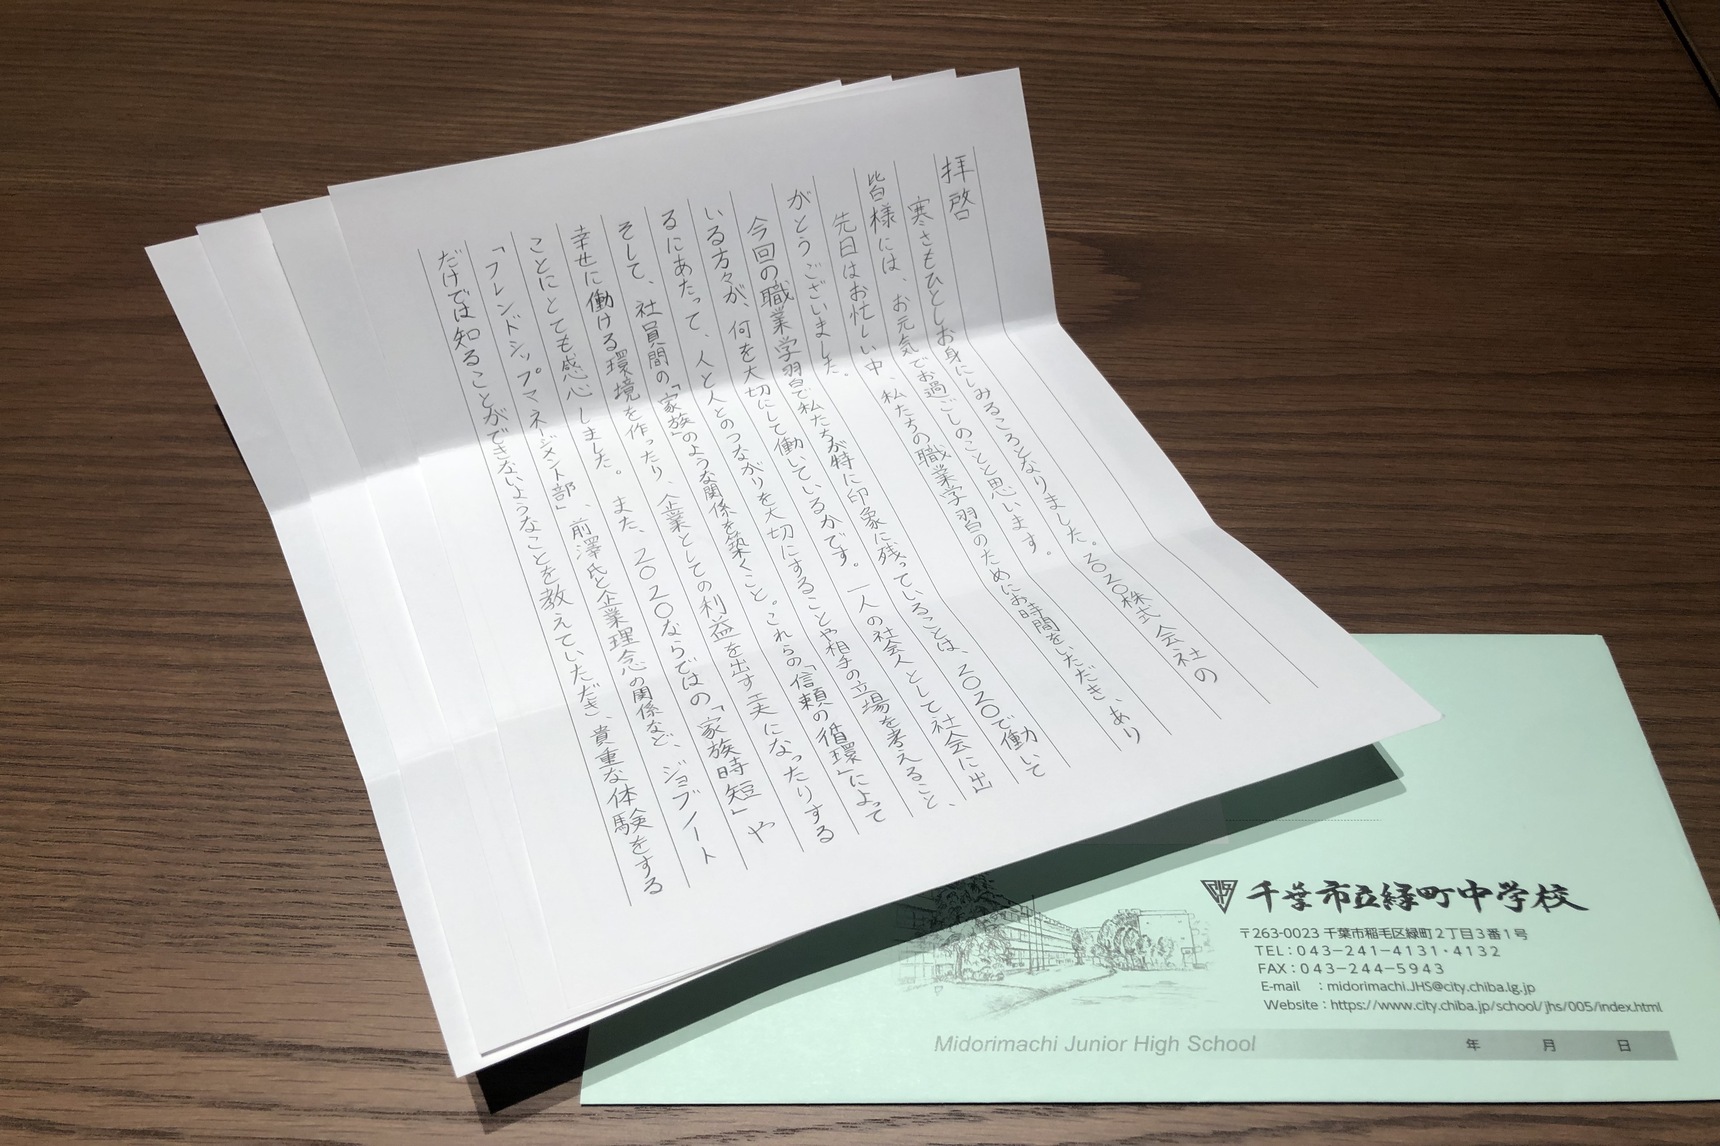 拝啓
寒さもひとしお身にしみるころとなりました。2020株式会社の
皆様には、お元気でお過ごしのことと思います。
先日はお忙しい中、私たちの職業学習のためにお時間をいただき、あり
がとうございました。
今回の職業学習で私たちが特に印象に残っていることは、2020で働いて
いる方々が、何を大切にして働いているかです。一人の社会人として社会に出
るにあたって、人と人とのつながりを大切にすることや相手の立場を考えること、
そして、社員間の「家族」のような関係を築くこと。これらの「信頼の循環」によって
幸せに働ける環境を作ったり、企業としての利益を出す工夫になったりする
ことにとても感心しました。また、2020ならではの「家族時短」や
「フレンドシップマネージメント部」、前澤氏と企業理念の関係など、ジョブノート
だけでは知ることができないようなことを教えていただき、貴重な体験をする
千葉市立緑町中学校
〒263-0023 千葉市稲毛区緑町2丁目3番1号
TEL:043-241-4131・4132
FAX:043-244-5943
E-mail :midorimachi.JHS@city.chiba.lg.jp
Website:https://www.city.chiba.jp/school/jhs/005/index.html
Midorimachi Junior High School
年 月 日